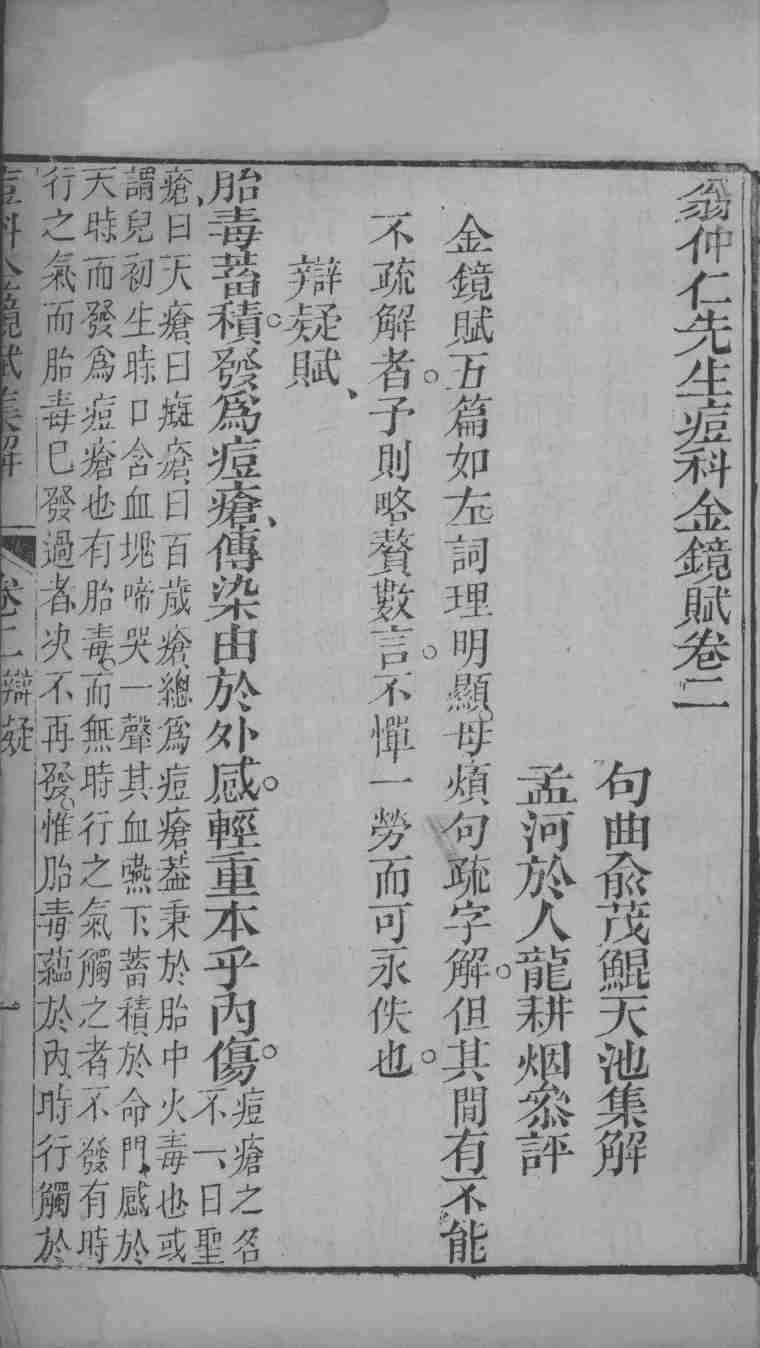 翁仲仁先生痘科金鏡賦卷二
句曲俞茂鯤天池集解
孟河於人龍耕烟叅評
金鏡賦五篇如左詞理明顯。毋煩句疏字解。但其間有不能
不疏解者。予則略贅數言。不憚一勞而可永佚也。
辯疑賦、
胎毒蓄積。發爲痘瘡、傳染由於外感。輕重本乎內傷。痘瘡之名
不一、曰聖
瘡、曰天瘡、曰癡瘡、曰百歲瘡、總爲痘瘡、葢秉於胎中火毒也或
謂兒初生時口含血塊啼哭一聲其血嚥下蓄積於命門、感於
天時而發爲痘瘡也有胎毒。而無時行之氣觸之者不發有時
行之氣而胎毒已發過者、决不再發。惟胎毒蘊於內、時行觸於
痘科金鏡賦集解 卷二 辯疑 一